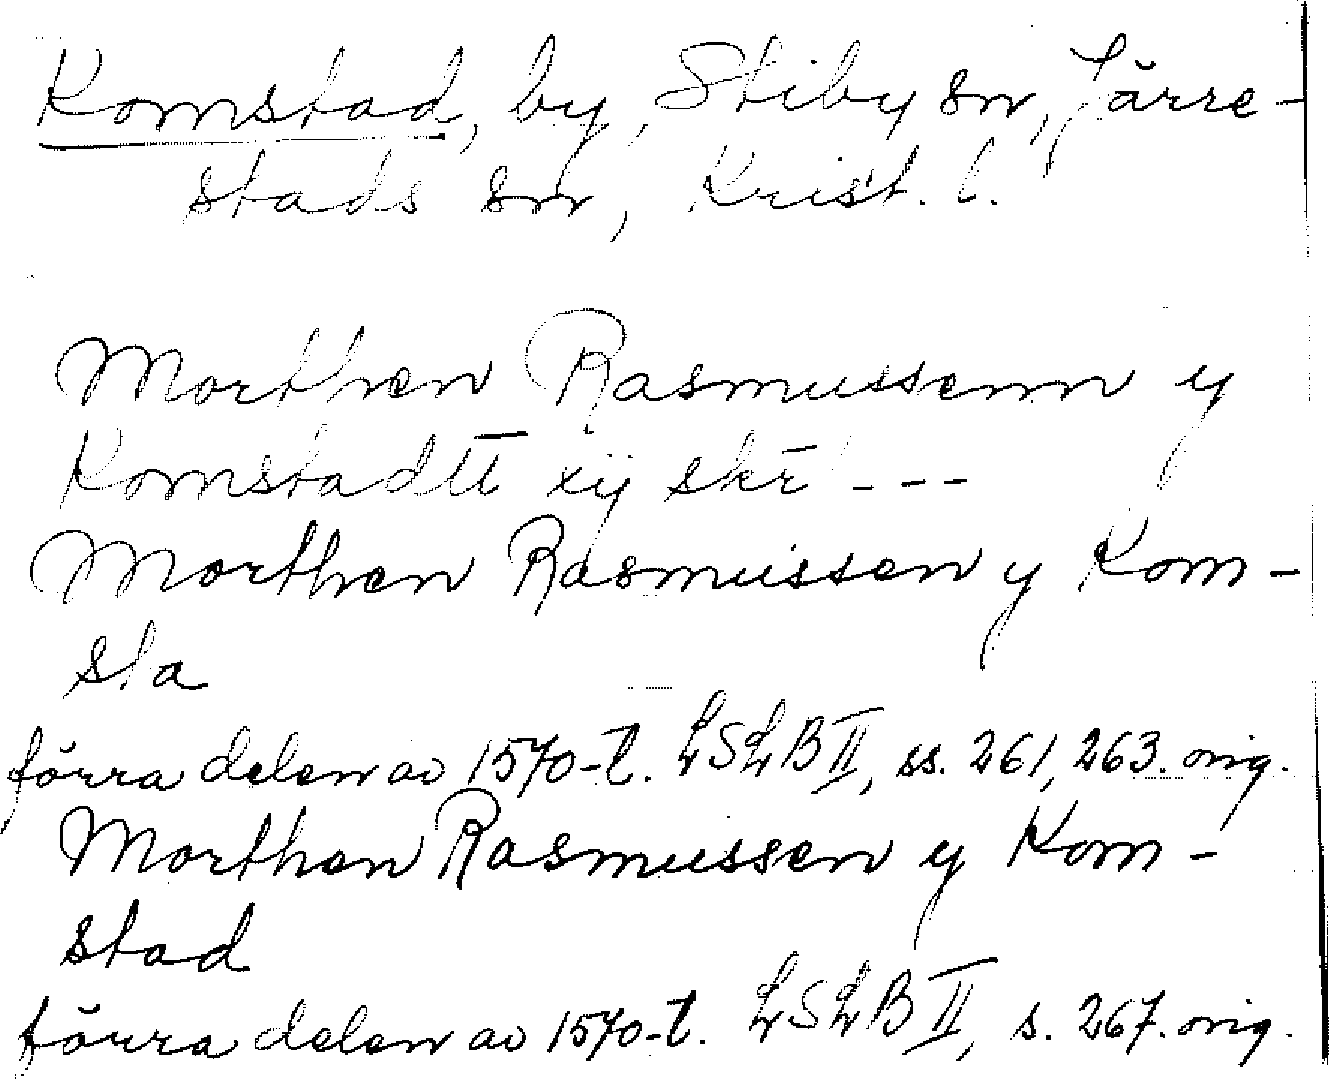 Komstad, by, Stiby sn, Järre-
stads sn, Krist. l.
Morthen Rasmussenn y
Komstadtt xij skr̄ ---
Morthen Rasmussen y Kom-
sta
förra delen av 1570-t. LSLB II, ss. 261, 263. orig.
Morthen Rasmussen y Kom-
stad
förra delen av 1570-t. LSLB II, s. 267. orig.